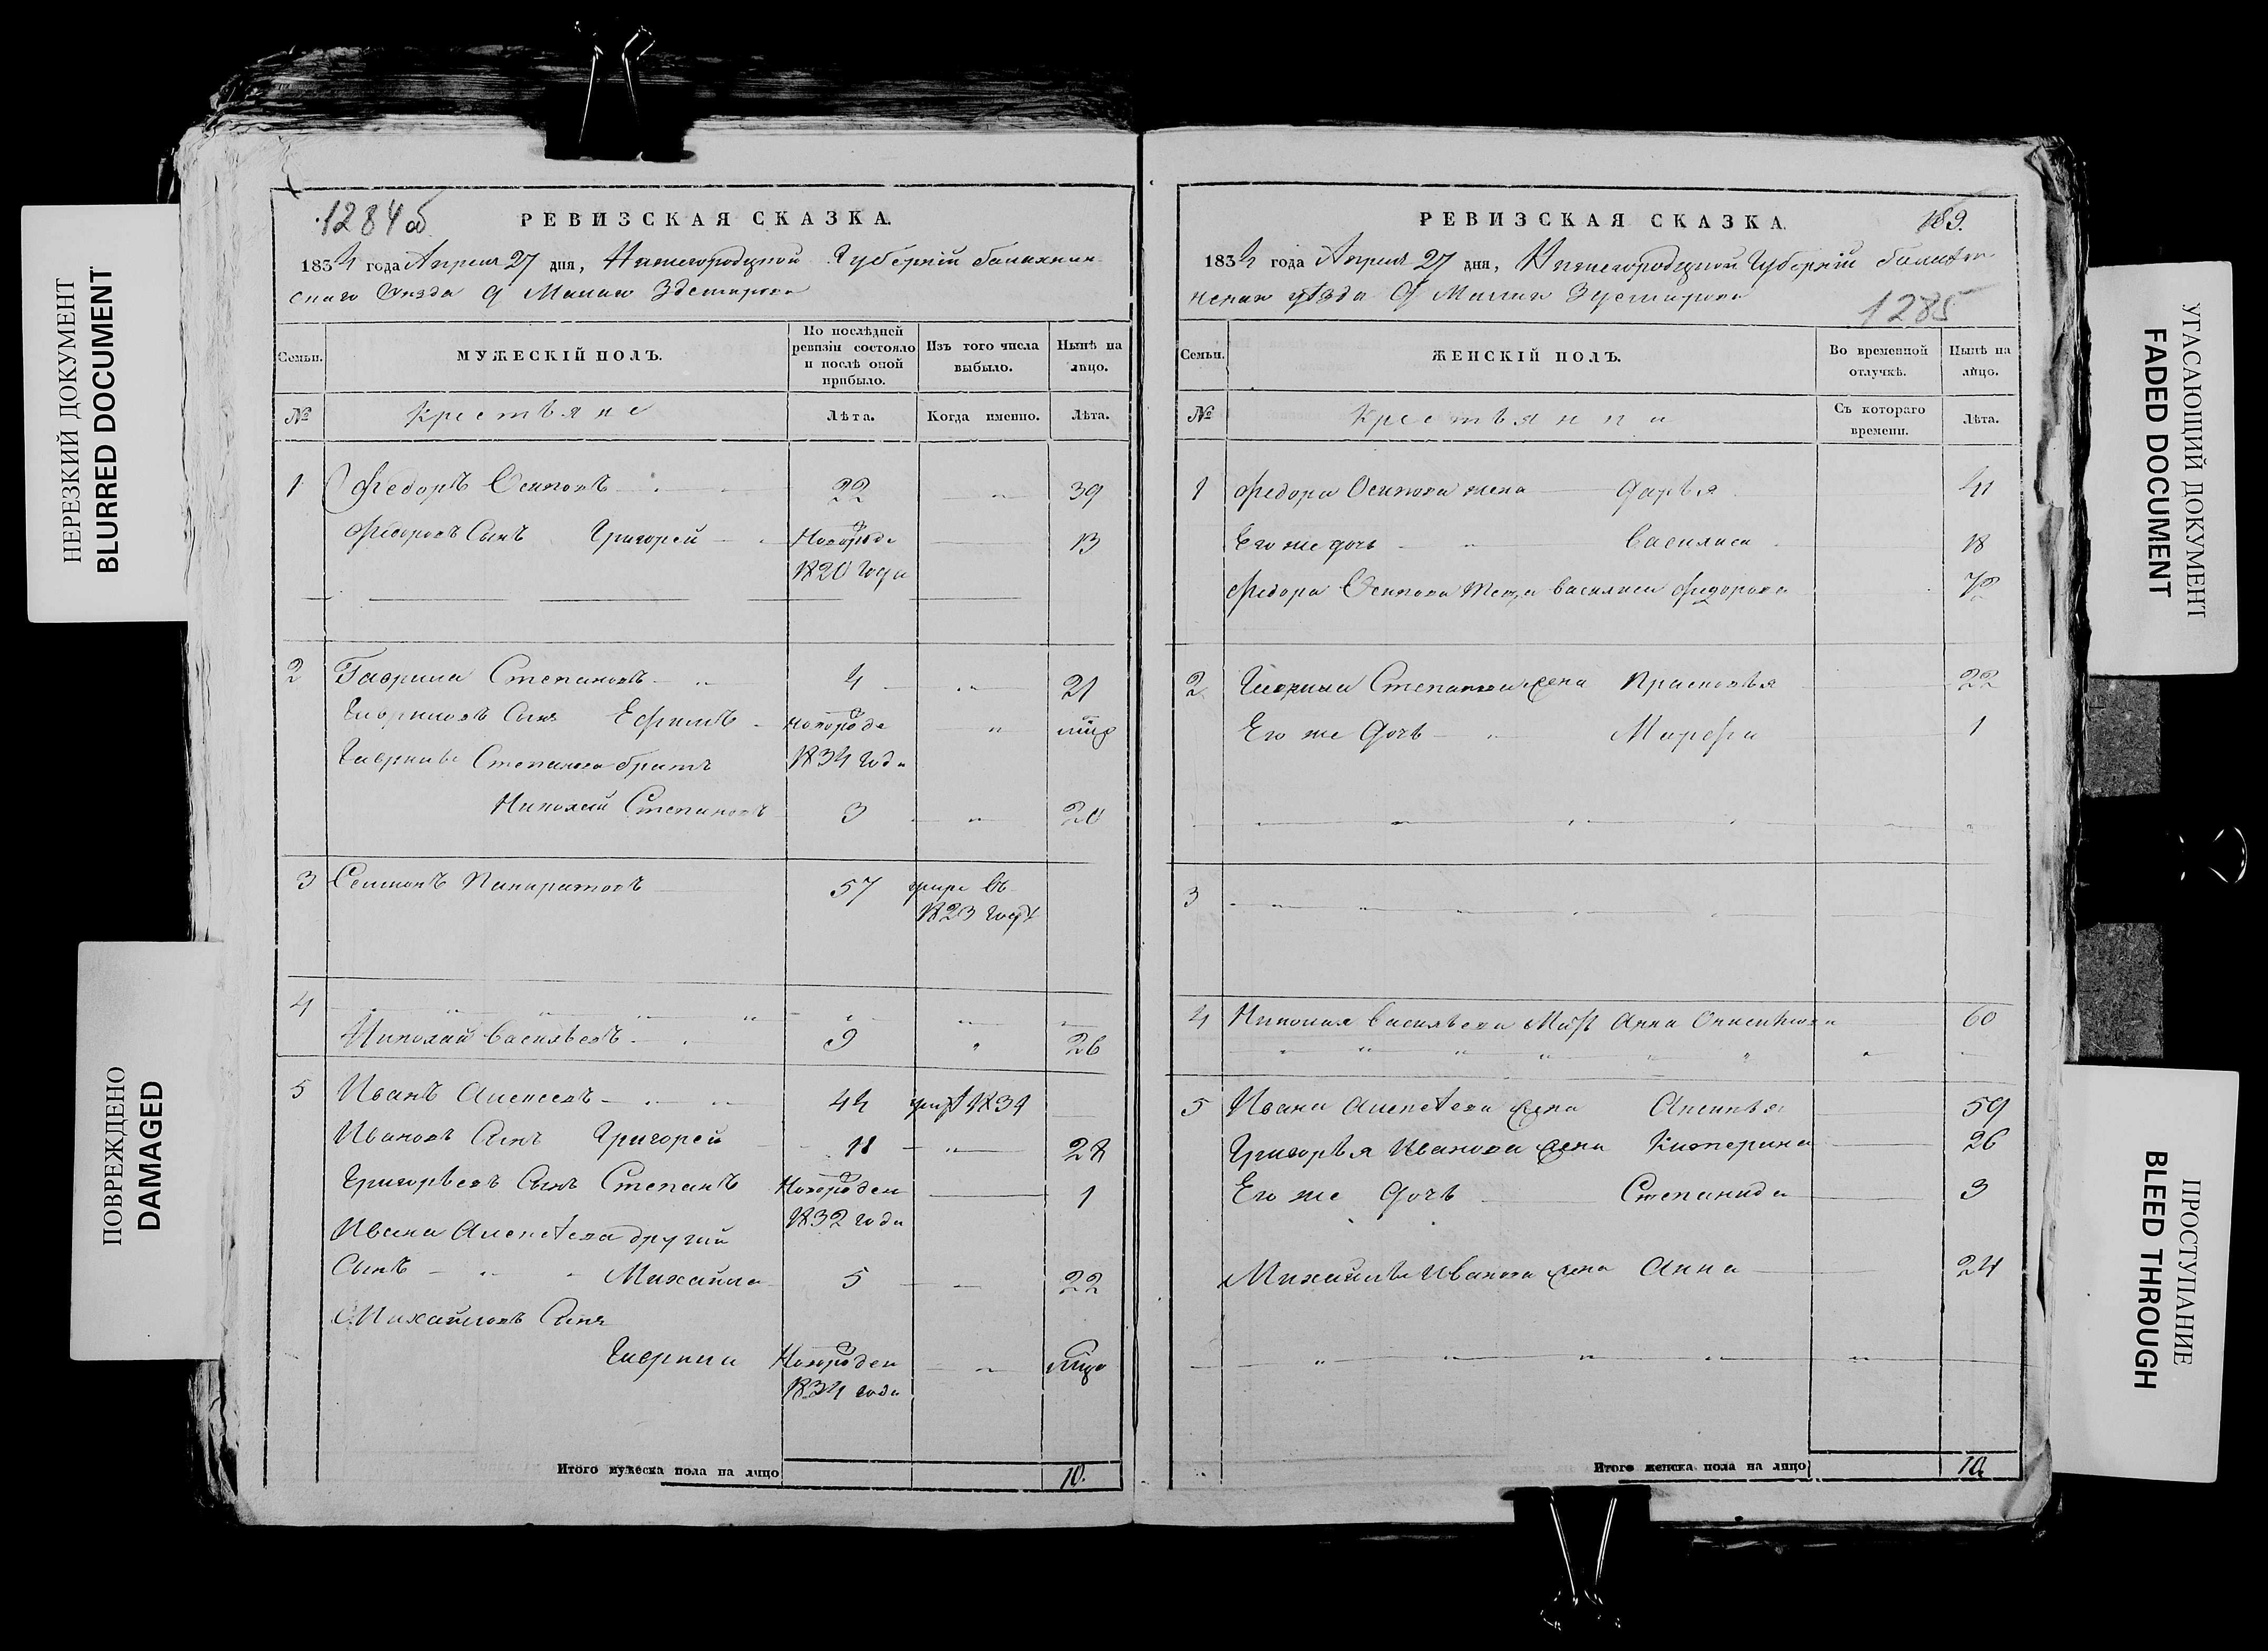 НЕРЕЗКИЙ ДОКУМЕНТ
BLURRED DOCUMENT
ПОВРЕЖДЕНО
DAMAGED
1284об
РЕВИЗСКАЯ СКАЗКА.
1834 года Апреля 27 дня, Нижегородской Губернiи Балахнин
скаго Уезда
Семьи.
МУЖЕСКIЙ ПОЛЪ.
По послѣдней ревизiи состояло и послѣ оной прибыло.
Изъ того числа выбыло.
Нынѣ на лицо.
№
Крестьяне
Лѣта.
Когда именно.
Лѣта.
1 Федоръ Осиповъ 22 39
Федоровъ Сынъ Григорей Новорожде 13
1820 года
2 Гаврила Степановъ 4 21
Гавриловъ Сынъ Ефимъ новорожде
1834 года
Гаврилы Степанова братъ
Николай Степановъ 3 20
3 Семионъ Панкратовъ 57 умре въ
1823 годѣ
4
Николай Васильевъ 9 26
5 Иванъ Алексеевъ 44 1834
Ивановъ Сынъ Григорей 11 28
Григорьевъ Сынъ Степанъ Новорожден 1
1832 года
Ивана Алексѣева другий
Сынъ Михайла 5 22
Михайловъ Сынъ
Гаврила Новорожден
1834 года
Итого мужеска пола на лицо 10.
РЕВИЗСКАЯ СКАЗКА.
189.
1834 года Апреля 27 дня, Нижегородской Губернiи Балахни
нскаго уѣзда
1285
Семьи.
ЖЕНСКIЙ ПОЛЪ.
Во временной отлучкѣ.
Нынѣ на лицо.
№
Крестьянки
Съ котораго времени.
Лѣта.
1 Федора Осипова жена Дарья 41
Его же дочь Василиса 18
Федора Осипова теща Василиса Федорова 72
2 Гаврила Степанова жена Прасковья 22
Его же Дочь Марфа 1
3
4 Николая Васильева Мать Анна 60
5 Ивана Алексѣева жена Аксинья 59
Григорья Иванова жена Катерина 26
Его же Дочь Степанида 3
Михайлы Иванова жена Анна 24
Итого женска пола на лицо 10
УГАСАЮЩИЙ ДОКУМЕНТ
FADED DOCUMENT
ПРОСТУПАНИЕ
BLEED THROUGH